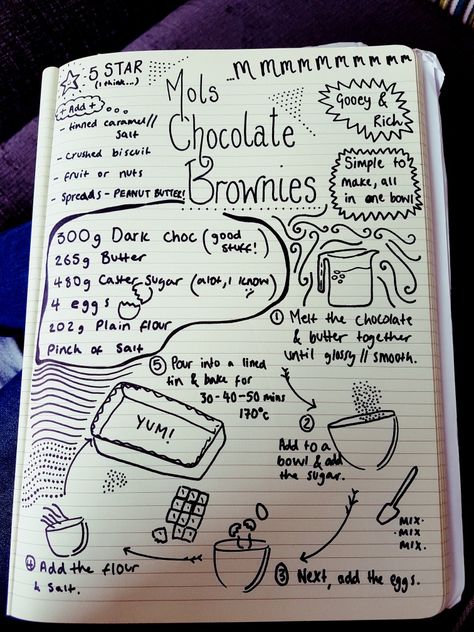 5 STAR
(I think...)
...MMMMMMMMMM
Mols
Chocolate
Brownies
Gooey &
Rich
Simple to
make, all
in one bowl
+ Add + ...
- tinned caramel//
salt
- crushed biscuit
- fruit or nuts
- Spreads - PEANUT BUTTER!
300g Dark Choc (good
stuff!)
265g Butter
480g Caster Sugar (alot, I know)
4 eggs
202g Plain flour
Pinch of Salt
① Melt the chocolate
& butter together
until glossy // smooth.
② Add to a
bowl & add
the sugar.
MIX.
MIX.
MIX.
③ Next, add the eggs.
④ Add the flour
& salt.
⑤ Pour into a lined
tin & bake for
30-40-50 mins
170°c
YUM!